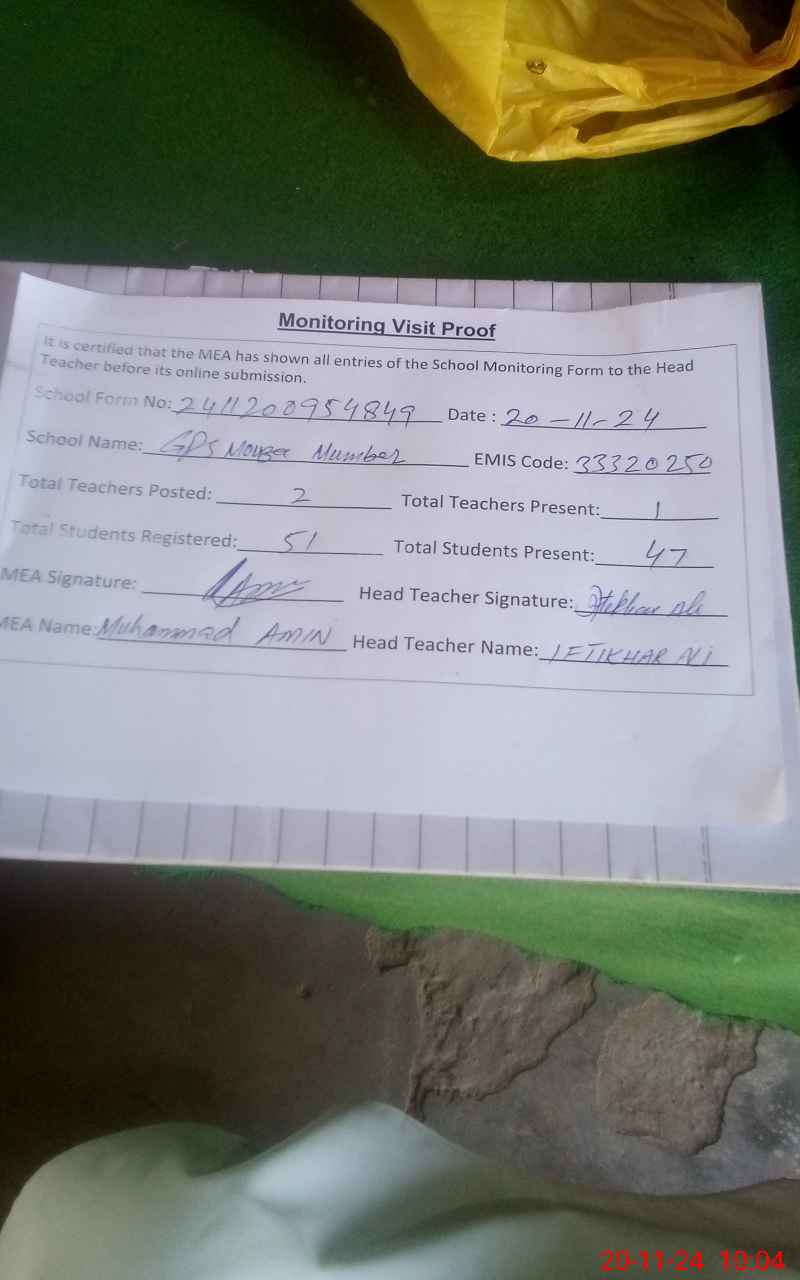 Monitoring Visit Proof
It is certified that the MEA has shown all entries of the School Monitoring Form to the Head
Teacher before its online submission.
School Form No: 2411200954849 Date : 20-11-24
School Name: GPS Mouza Mumber EMIS Code: 33320250
Total Teachers Posted: 2 Total Teachers Present: 1
Total Students Registered: 51 Total Students Present: 47
MEA Signature: Amin Head Teacher Signature: Iftikhar Ali
MEA Name: Muhammad AMIN Head Teacher Name: IFTIKHAR Ali
20-11-24 10:04